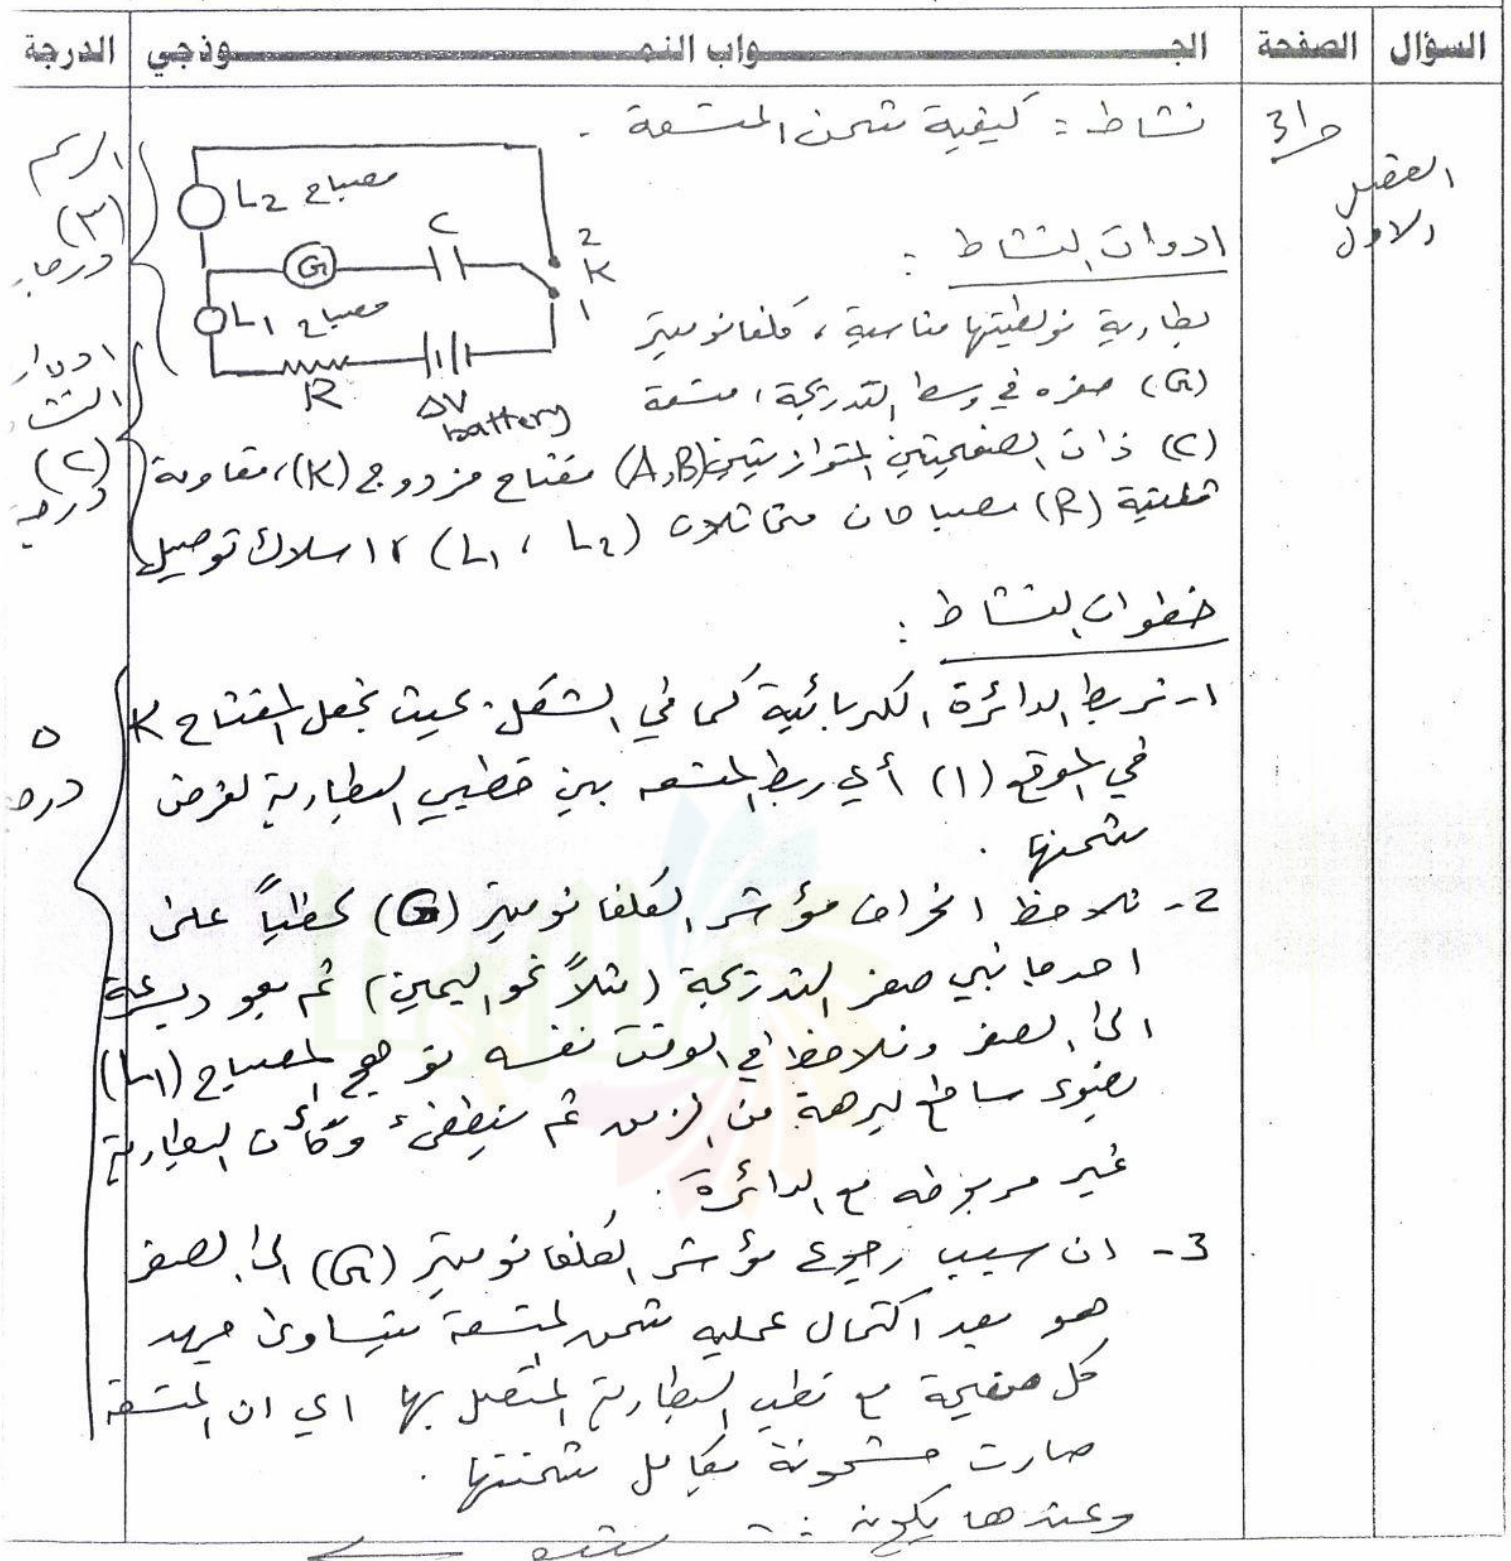 السؤال الصفحة الجـــواب النمـــوذجي الدرجة
نشاط : كيفية شحن المتسعة .
الفصل
الاول
الرسم
(٣)
مصباح L2
C
2
K
1
G
مصباح L1
R
ΔV
battery
ادوات النشاط :
بطارية فولطيتها مناسبة ، كلفانوميتر
(G) صفره في وسط التدريجة ، متسعة
(C) ذات الصفيحتين المتوازيتين (A,B) مفتاح مزدوج (K) ، مقاومة
(٢)
ثابتة (R) مصباحان متماثلان (L1 ، L2) ، اسلاك توصيل
خطوات النشاط :
١- نربط الدائرة الكهربائية كما في الشكل . بحيث نجعل المفتاح K
في الموقع (1) أي ربط المتسعه بين قطبي البطارية لغرض
شحنها .
٥
2- نلاحظ انحراف مؤشر الكلفانوميتر (G) لحظياً على
احد جانبي صفر التدريجة (مثلاً نحو اليمين) ثم يعود بسرعة
الى الصفر ونلاحظ في الوقت نفسه توهج المصباح (L1)
بضوء ساطع لبرهة من الزمن ثم ينطفئ وكأن البطارية
غير مربوطه مع الدائرة .
3- ان سبب رجوع مؤشر الكلفانوميتر (G) الى الصفر
هو بعد اكتمال عمليه شحن المتسعة يتساوى جهد
كل صفيحة مع قطب البطارية المتصل بها اي ان المتسعة
صارت مشحونة بكامل شحنتها .
وعندها يكون :